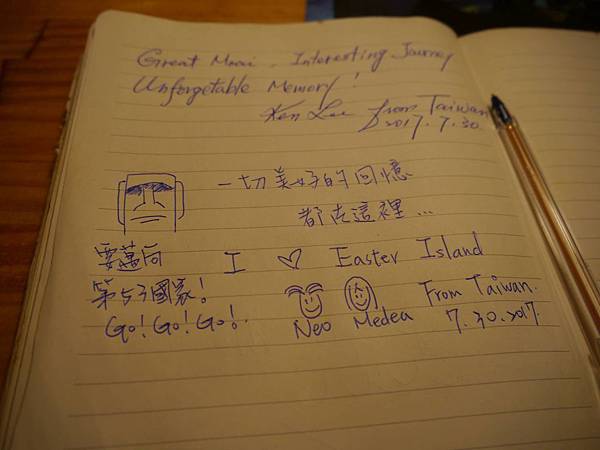 Great Moai. Interesting Journey
Unforgetable Memory!
Ken Lee from Taiwan
2017.7.30
一切美好的回憶
都在這裡...
要邁向 I ♡ Easter Island
第53國家!
Go! Go! Go!
Neo Medea From Taiwan.
7.30.2017